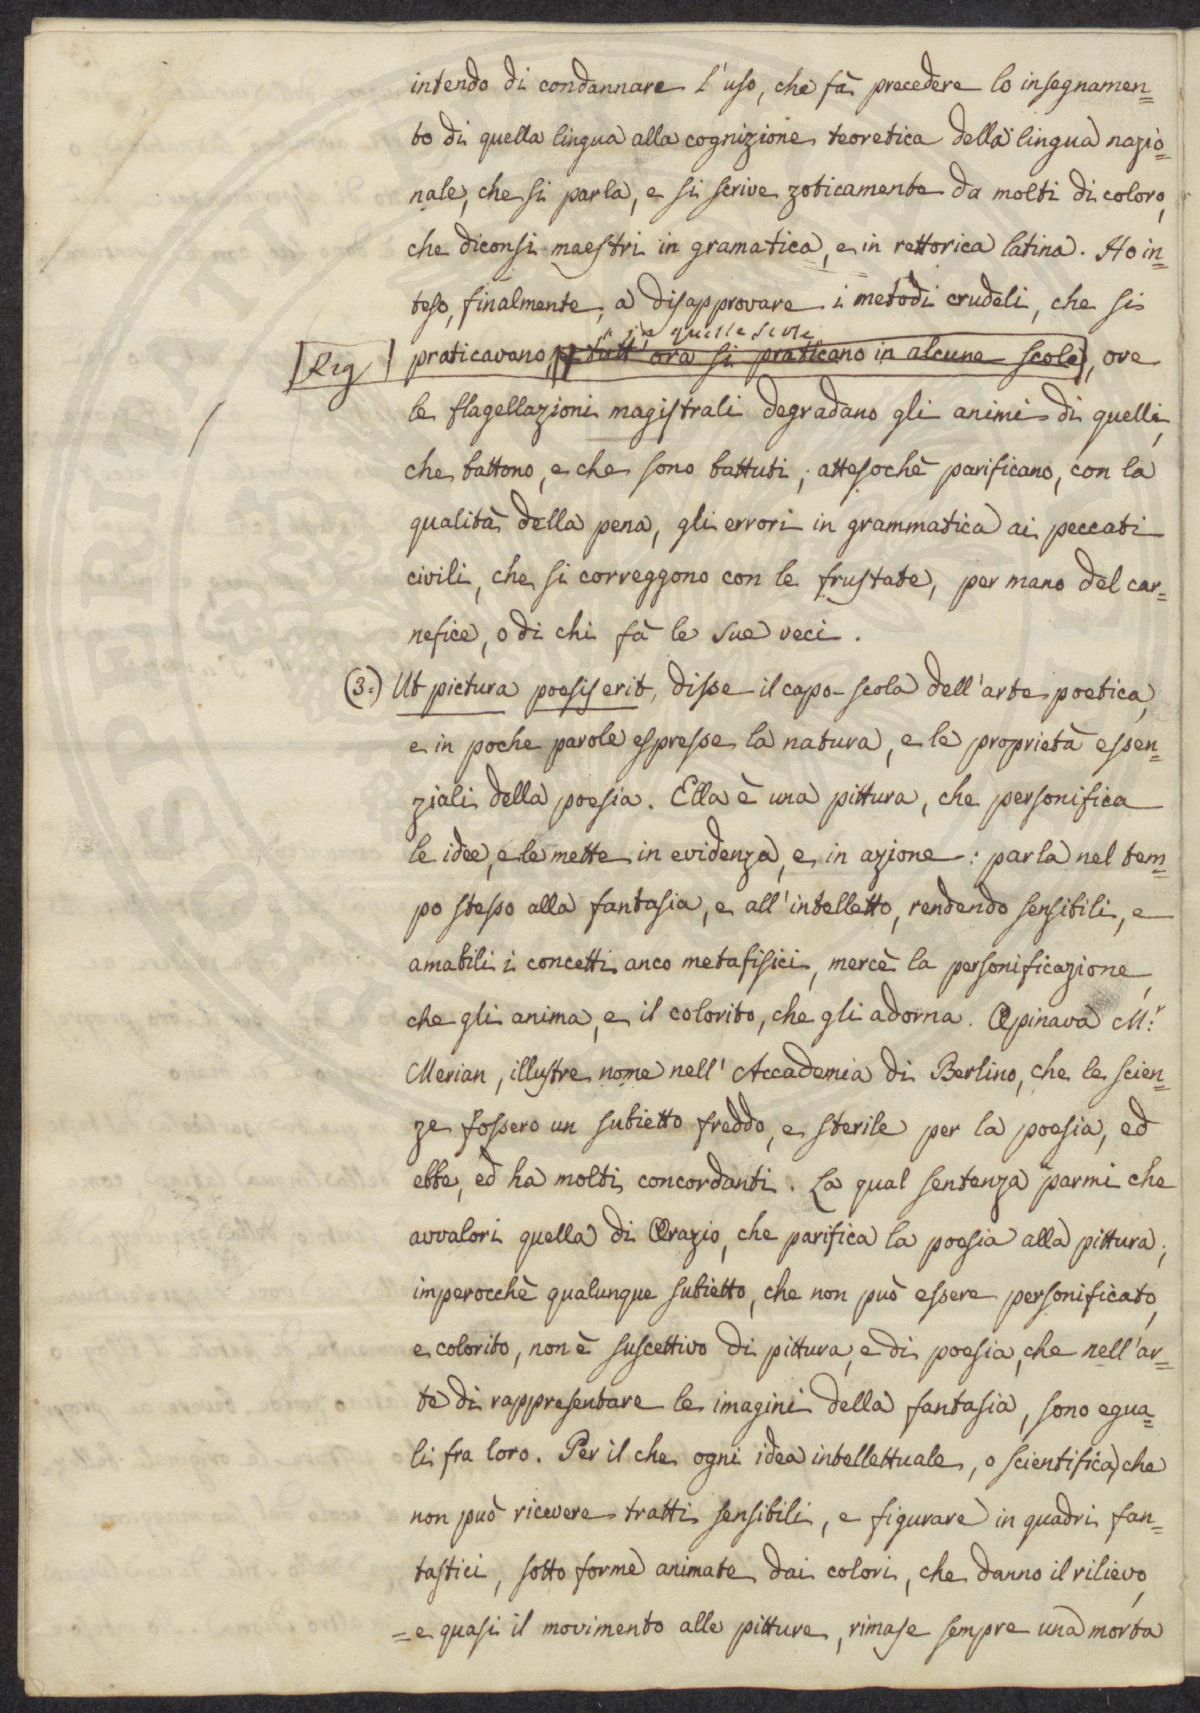 intendo di condannare l'uso, che fà precedere lo insegnamen=
to di quella lingua alla cognizione teoretica della lingua nazio=
nale, che si parla, e si scrive zoticamente da molti di coloro,
che diconsi maestri in gramatica, e in rettorica latina. Ho in=
teso, finalmente, a disapprovare i metodi crudeli, che si
in quelle scole
Rig praticavano, e tutt'ora si praticano in alcune scole, ove
le flagellazioni magistrali degradano gli animi di quelli,
che battono, e che sono battuti; attesochè parificano, con la
qualità della pena, gli errori in grammatica ai peccati
civili, che si correggono con le frustate, per mano del car=
nefice, o di chi fà le sue veci.
(3.) Ut pictura poesis erit, disse il capo-scola dell'arte poetica,
e in poche parole espresse la natura, e le proprietà essen=
ziali della poesia. Ella è una pittura, che personifica
le idee, e le mette in evidenza, e in azione: parla nel tem=
po stesso alla fantasia, e all'intelletto, rendendo sensibili, e
amabili i concetti anco metafisici, mercè la personificazione,
che gli anima, e il colorito, che gli adorna. Opinava M.r
Merian, illustre nome nell'Accademia di Berlino, che le scien=
ze fossero un subietto freddo, e sterile per la poesia, ed
ebbe, ed ha molti concordanti. La qual sentenza parmi che
avvalori quella di Orazio, che parifica la poesia alla pittura;
imperocchè qualunque subietto, che non può essere personificato,
e colorito, non è suscettivo di pittura, e di poesia, che nell'ar=
te di rappresentare le imagini della fantasia, sono egua=
li fra loro. Per il che ogni idea intellettuale, o scientifica, che
non può ricevere tratti sensibili, e figurare in quadri fan=
tastici, sotto forme animate dai colori, che danno il rilievo,
= e quasi il movimento alle pitture, rimase sempre una morta